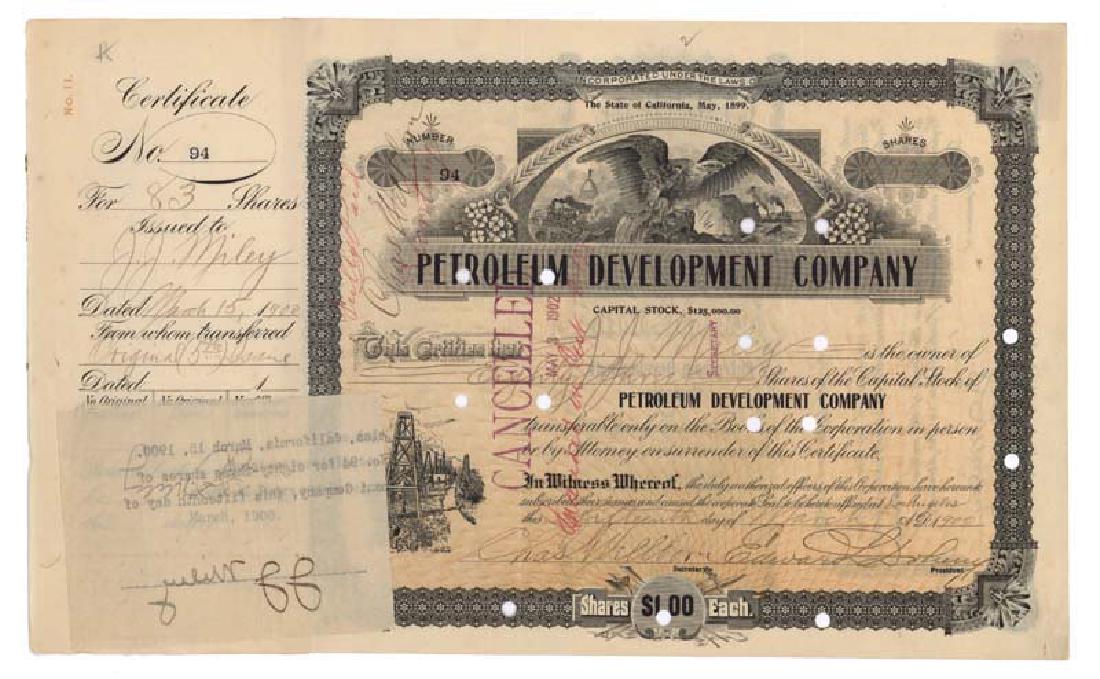 No. 11.
Certificate
No. 94
For 83 Shares
Issued to
J. J. Miley
Dated March 15, 1900
From whom transferred
Original 5th Issue
Dated 1
No Original No Original
2
INCORPORATED UNDER THE LAWS OF
The State of California, May, 1899.
NUMBER
94
SHARES
PETROLEUM DEVELOPMENT COMPANY
CAPITAL STOCK, $125,000.00
This Certifies that J. J. Miley is the owner of
Shares of the Capital Stock of
PETROLEUM DEVELOPMENT COMPANY
transferable only on the Books of the Corporation in person
or by Attorney on surrender of this Certificate.
In Witness Whereof, the duly authorized officers of this Corporation have hereunto
subscribed their names and caused the corporate Seal to be hereto affixed at Los Angeles
this Fifteenth day of March A.D. 1900
Edward L. Doheny
Secretary.
President.
Shares $1.00 Each.
CANCELLED
MAY 3 1902
SECRETARY
California, March 15, 1900.
No. 94 for eighty-three shares of
Company, this fifteenth day of
March, 1900.
J J Miley